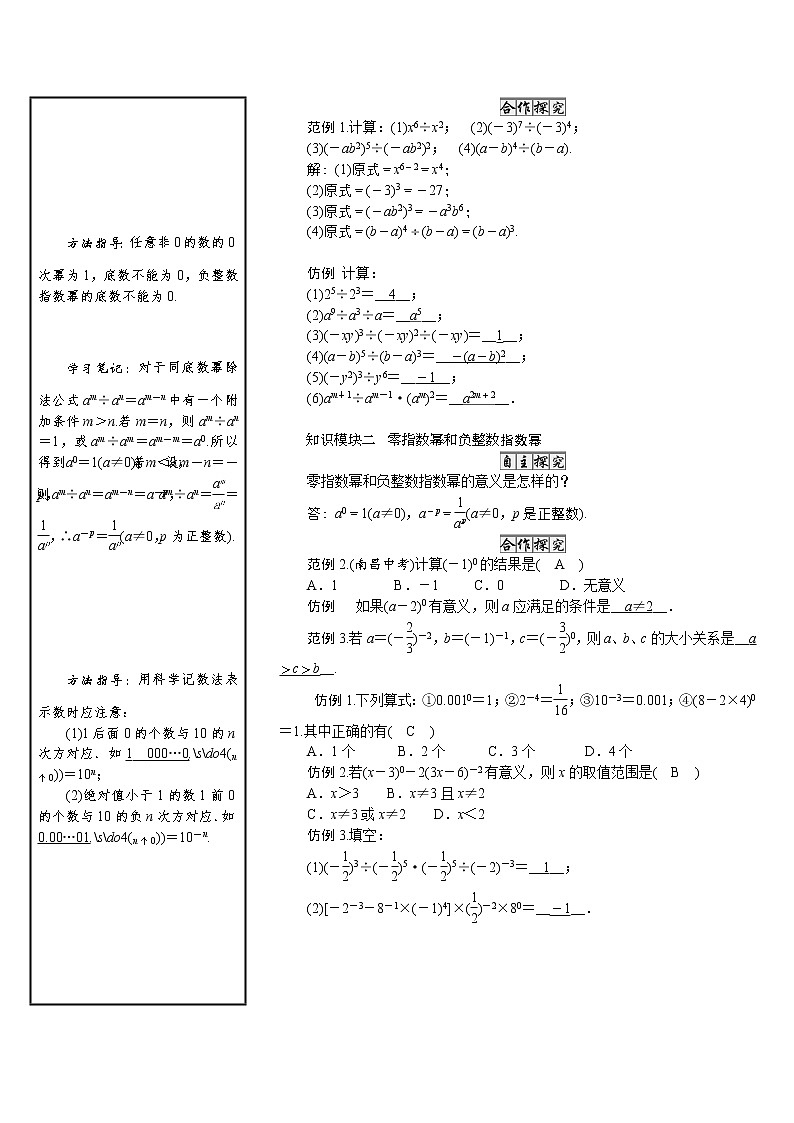 方法指导：任意非0的数的0
次幂为1，底数不能为0，负整数
指数幂的底数不能为0.
学习笔记：对于同底数幂除
法公式aᵐ÷aⁿ＝aᵐ⁻ⁿ中有一个附
加条件m＞n.若m＝n，则aᵐ÷aⁿ
＝1，或aᵐ÷aᵐ＝aᵐ⁻ᵐ＝a⁰.所以
得到a⁰＝1(a≠0)若m＜n，设m－n＝－
p，则aᵐ÷aⁿ＝aᵐ⁻ⁿ＝a⁻ᵖ，aᵐ÷aⁿ＝aᵐ/aⁿ＝
1/aᵖ，∴a⁻ᵖ＝1/aᵖ(a≠0，p为正整数).
方法指导：用科学记数法表
示数时应注意：
(1)1后面0的个数与10的n
次方对应．如1 000…0,\s\do4(n
↑0))＝10ⁿ；
(2)绝对值小于1的数1前0
的个数与10的负n次方对应.如
0.00…01,\s\do4(n↑0))＝10⁻ⁿ.
合作探究
范例1.计算：(1)x⁶÷x²； (2)(－3)⁷÷(－3)⁴；
(3)(－ab²)⁵÷(－ab²)²； (4)(a－b)⁴÷(b－a).
解：(1)原式＝x⁶⁻²＝x⁴；
(2)原式＝(－3)³＝－27；
(3)原式＝(－ab²)³＝－a³b⁶；
(4)原式＝(b－a)⁴÷(b－a)＝(b－a)³.
仿例 计算：
(1)2⁵÷2³＝__4__；
(2)a⁹÷a³÷a＝__a⁵__；
(3)(－xy)³÷(－xy)²÷(－xy)＝__1__；
(4)(a－b)⁵÷(b－a)³＝__－(a－b)²__；
(5)(－y²)³÷y⁶＝__－1__；
(6)aᵐ⁺¹÷aᵐ⁻¹·(aᵐ)²＝__a²ᵐ⁺²__．
知识模块二 零指数幂和负整数指数幂
自主探究
零指数幂和负整数指数幂的意义是怎样的？
答：a⁰＝1(a≠0)，a⁻ᵖ＝1/aᵖ(a≠0，p是正整数).
合作探究
范例2.(南昌中考)计算(－1)⁰的结果是( A )
A．1 B．－1 C．0 D．无意义
仿例 如果(a－2)⁰有意义，则a应满足的条件是__a≠2__．
范例3.若a＝(－2/3)⁻²，b＝(－1)⁻¹，c＝(－3/2)⁰，则a、b、c的大小关系是__a
＞c＞b__.
仿例1.下列算式：①0.001⁰＝1；②2⁻⁴＝1/16；③10⁻³＝0.001；④(8－2×4)⁰
＝1.其中正确的有( C )
A．1个 B．2个 C．3个 D．4个
仿例2.若(x－3)⁰－2(3x－6)⁻²有意义，则x的取值范围是( B )
A．x＞3 B．x≠3且x≠2
C．x≠3或x≠2 D．x＜2
仿例3.填空：
(1)(－1/2)³÷(－1/2)⁵·(－1/2)⁵÷(－2)⁻³＝__1__；
(2)[－2⁻³－8⁻¹×(－1)⁴]×(1/2)⁻²×8⁰＝__－1__．